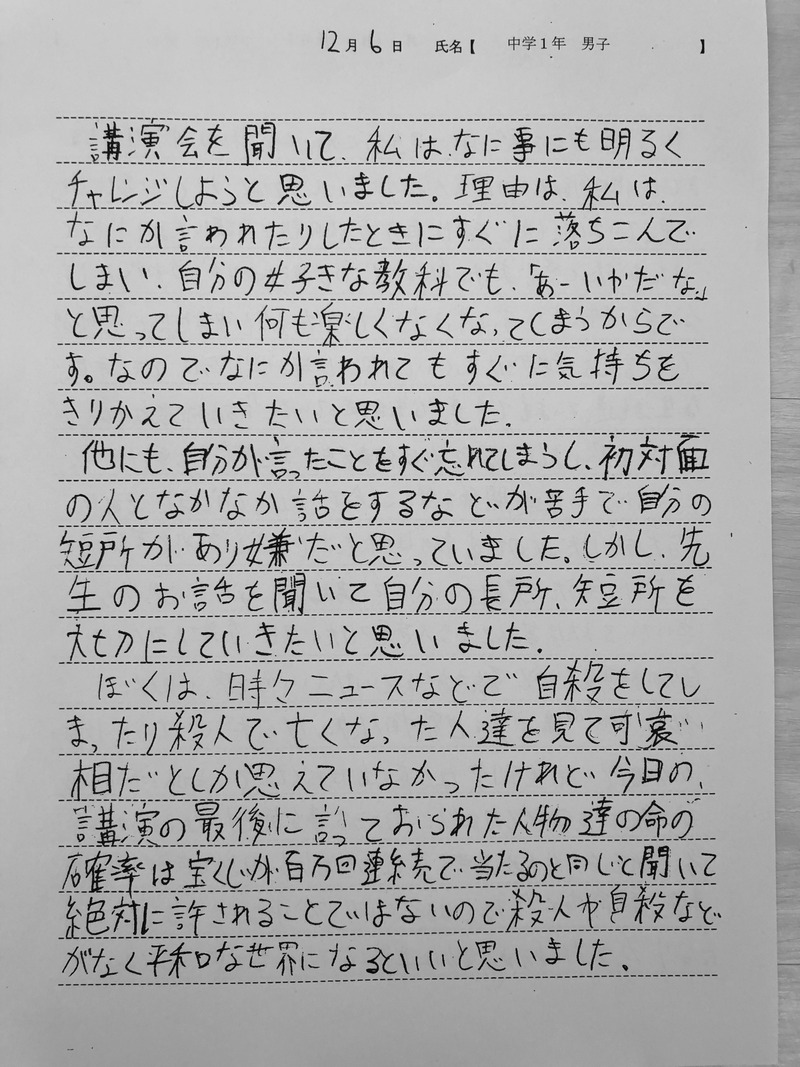 12月6日 氏名【 中学1年 男子 】
講演会を聞いて、私は、なに事にも明るく
チャレンジしようと思いました。理由は、私は、
なにか言われたりしたときにすぐに落ちこんで
しまい、自分の好きな教科でも、「あーいやだな。」
と思ってしまい何も楽しくなくなってしまうからで
す。なのでなにか言われてもすぐに気持ちを
きりかえていきたいと思いました。
他にも、自分が言ったことをすぐ忘れてしまうし、初対面
の人となかなか話をするなどが苦手で自分の
短所があり嫌だと思っていました。しかし、先
生のお話を聞いて自分の長所、短所を
大切にしていきたいと思いました。
ぼくは、時々ニュースなどで自殺をしてし
まったり殺人で亡くなった人達を見て可哀
相だとしか思えていなかったけれど今日の、
講演の最後に言っておられた人物達の命の
確率は宝くじが百万回連続で当たるのと同じと聞いて
絶対に許されることではないので殺人や自殺など
がなく平和な世界になるといいと思いました。